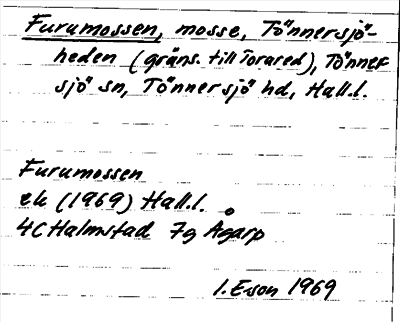 Furumossen, mosse, Tönnersjö-
heden (gräns. till Torared), Tönner
sjö sn, Tönnersjö hd, Hall.l.
Furumossen
ek (1969) Hall.l.
4C Halmstad 7g Ågarp
I. Eson 1969